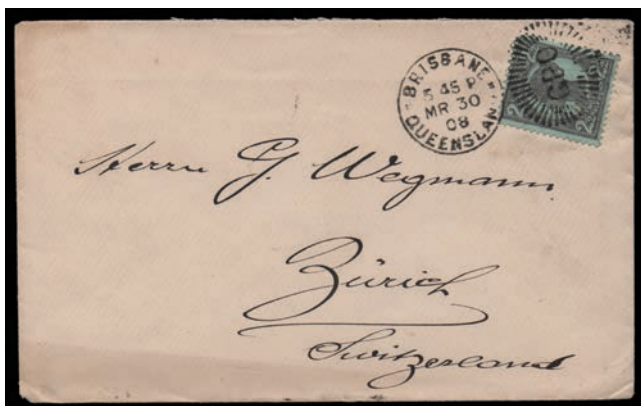 BRISBANE
5 45 P
MR 30
08
QUEENSLAN
GPO
2
2
Herrn G. Wegmann
Zürich
Switzerland